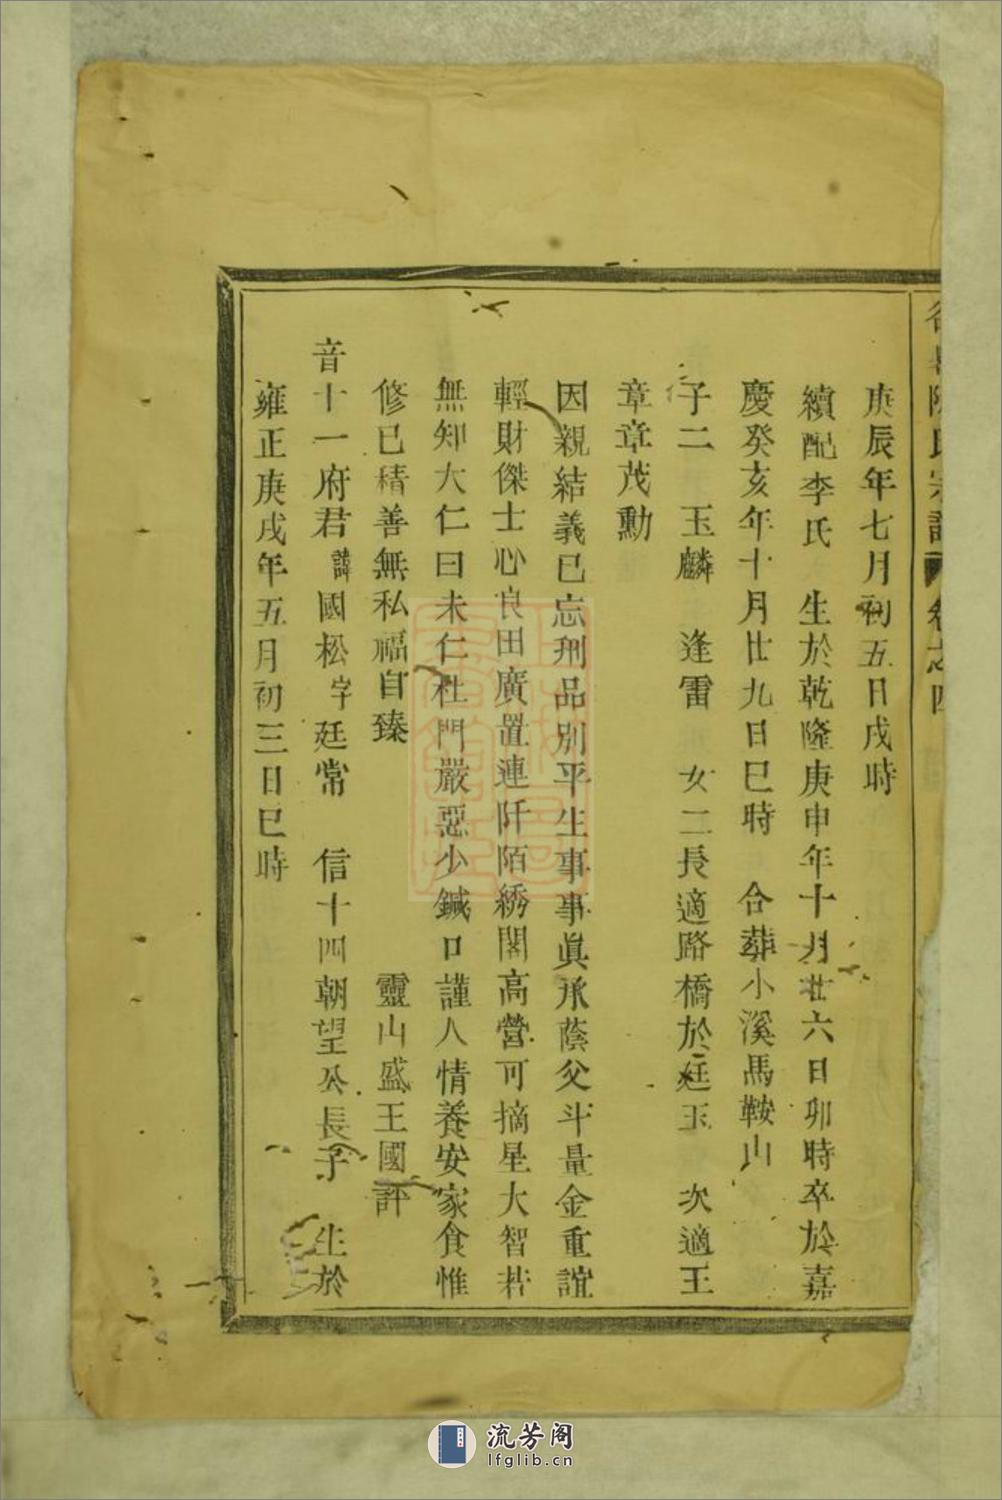 陳氏宗譜 卷之四
庚辰年七月初五日戌時
續配李氏 生於乾隆庚申年十月廿六日卯時卒於嘉
慶癸亥年十月廿九日巳時 合葬小溪馬鞍山
子二 玉麟 逢雷 女二長適路橋於廷玉 次適王
章章茂勳
因親結義已忘形品別平生事事眞承蔭父斗量金重誼
輕財傑士心良田廣置連阡陌綉閣高營可摘星大智若
無知大仁曰未仁杜門嚴惡少鍼口謹人情養安家食惟
修已積善無私福自臻 靈山盛王國評
音十一府君 諱國松字廷常 信十四朝望公長子 生於
雍正庚戌年五月初三日巳時
流芳阁
lfglib.cn